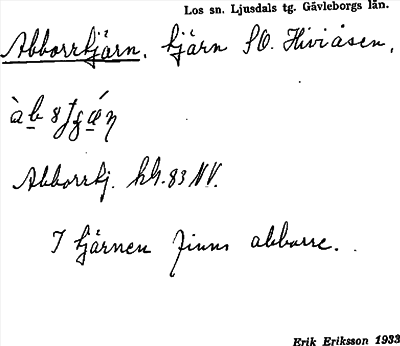 Los sn. Ljusdals tg. Gävleborgs län.
Abborrtjärn. tjärn SO. Hiviåsen,
Abborrtj. hk. 83 NV.
I tjärnen finns abborre.
Erik Eriksson 1933